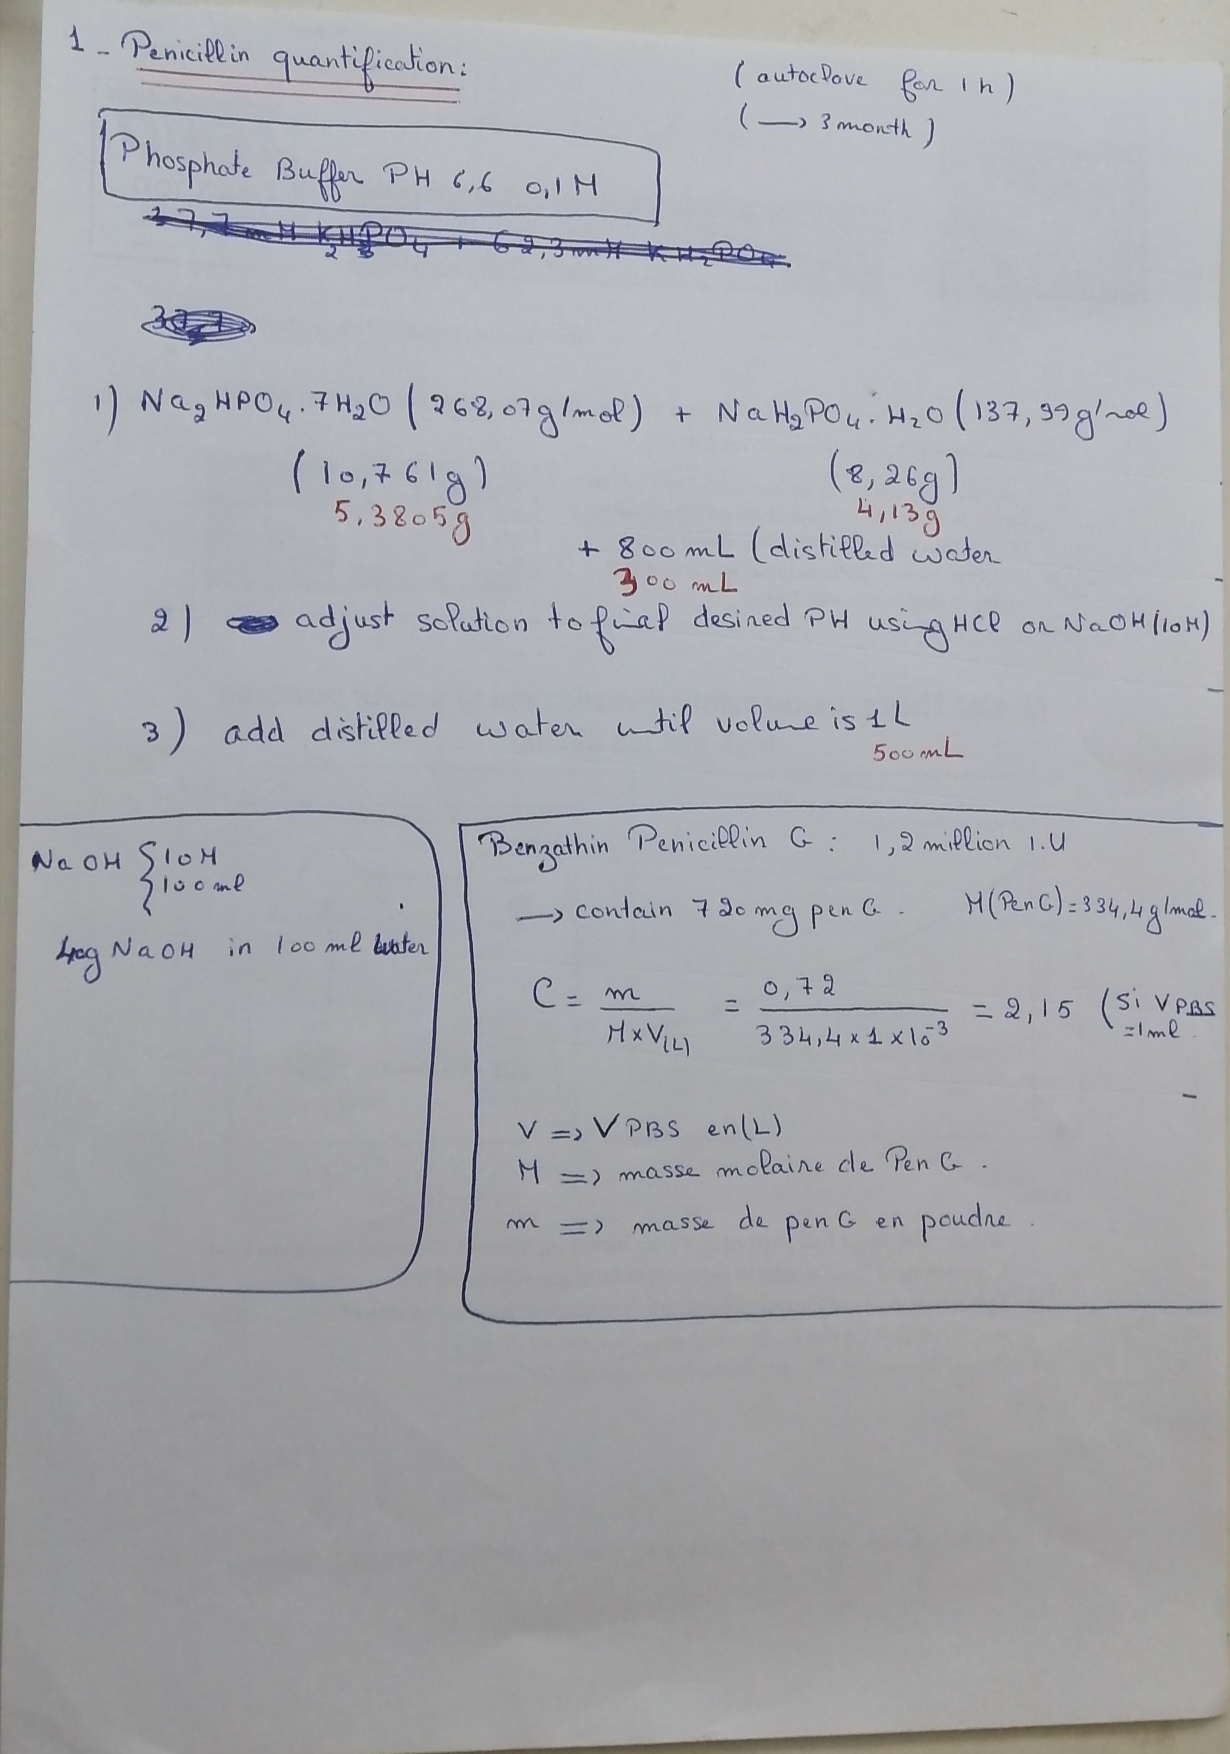 1 - Penicillin quantification:
(autoclove for 1h)
(→ 3 month)
Phosphate Buffer PH 6,6 0,1M
37,7 mM K2HPO4 + 62,3 mM KH2PO4
37,7
1) Na2HPO4.7H2O (268,07g/mol) + NaH2PO4.H2O (137,99g/mol)
(10,761g) (8,26g)
5,3805g 4,13g
+ 800 mL (distilled water
300 mL
2) adjust solution to final desired PH using HCl or NaOH (10M)
3) add distilled water until volume is 1L
500mL
NaOH { 10M
100ml
40g NaOH in 100 ml water
Benzathin Penicillin G : 1,2 million I.U
→ contain 720mg pen G. M(PenG)=334,4g/mol.
C = m / M×V(L) = 0,72 / 334,4 × 1 × 10^-3 = 2,15 (Si V PBS
=1ml.
V => V PBS en(L)
M => masse molaire de Pen G.
m => masse de pen G en poudre.